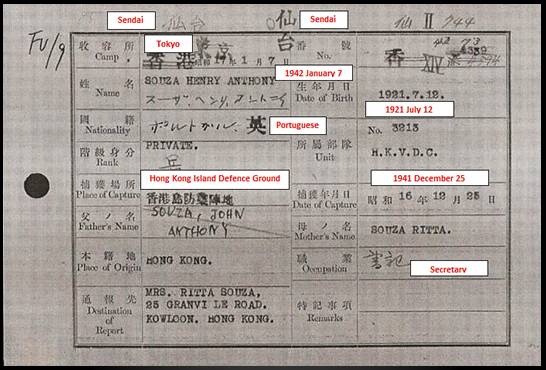 Sendai 仙台 仙台 Sendai 仙 II 744
FU/9
收容所 Camp Tokyo 香港 東京 昭和17年1月7日 番號 No. 香 XIV 4339
1942 January 7
姓名 Name SOUZA HENRY ANTHONY 生年月日 Date of Birth 1921.7.12.
スーザ, ヘンリ, アントニイ
1921 July 12
國籍 Nationality ポルトガル. 英 Portuguese 所屬部隊 Unit No. 3213
H.K.V.D.C.
階級身分 Rank PRIVATE.
兵
Hong Kong Island Defence Ground 1941 December 25
捕獲場所 Place of Capture 香港島防衛陣地 捕獲年月日 Date of Capture 昭和 16 年 12 月 25 日
父ノ名 Father's Name SOUZA, JOHN ANTHONY 母ノ名 Mother's Name SOUZA RITTA.
本籍地 Place of Origin HONG KONG. 職業 Occupation 書記 Secretary
通報先 Destination of Report MRS. RITTA SOUZA,
25 GRANVI LE ROAD.
KOWLOON. HONG KONG.
特記事項 Remarks